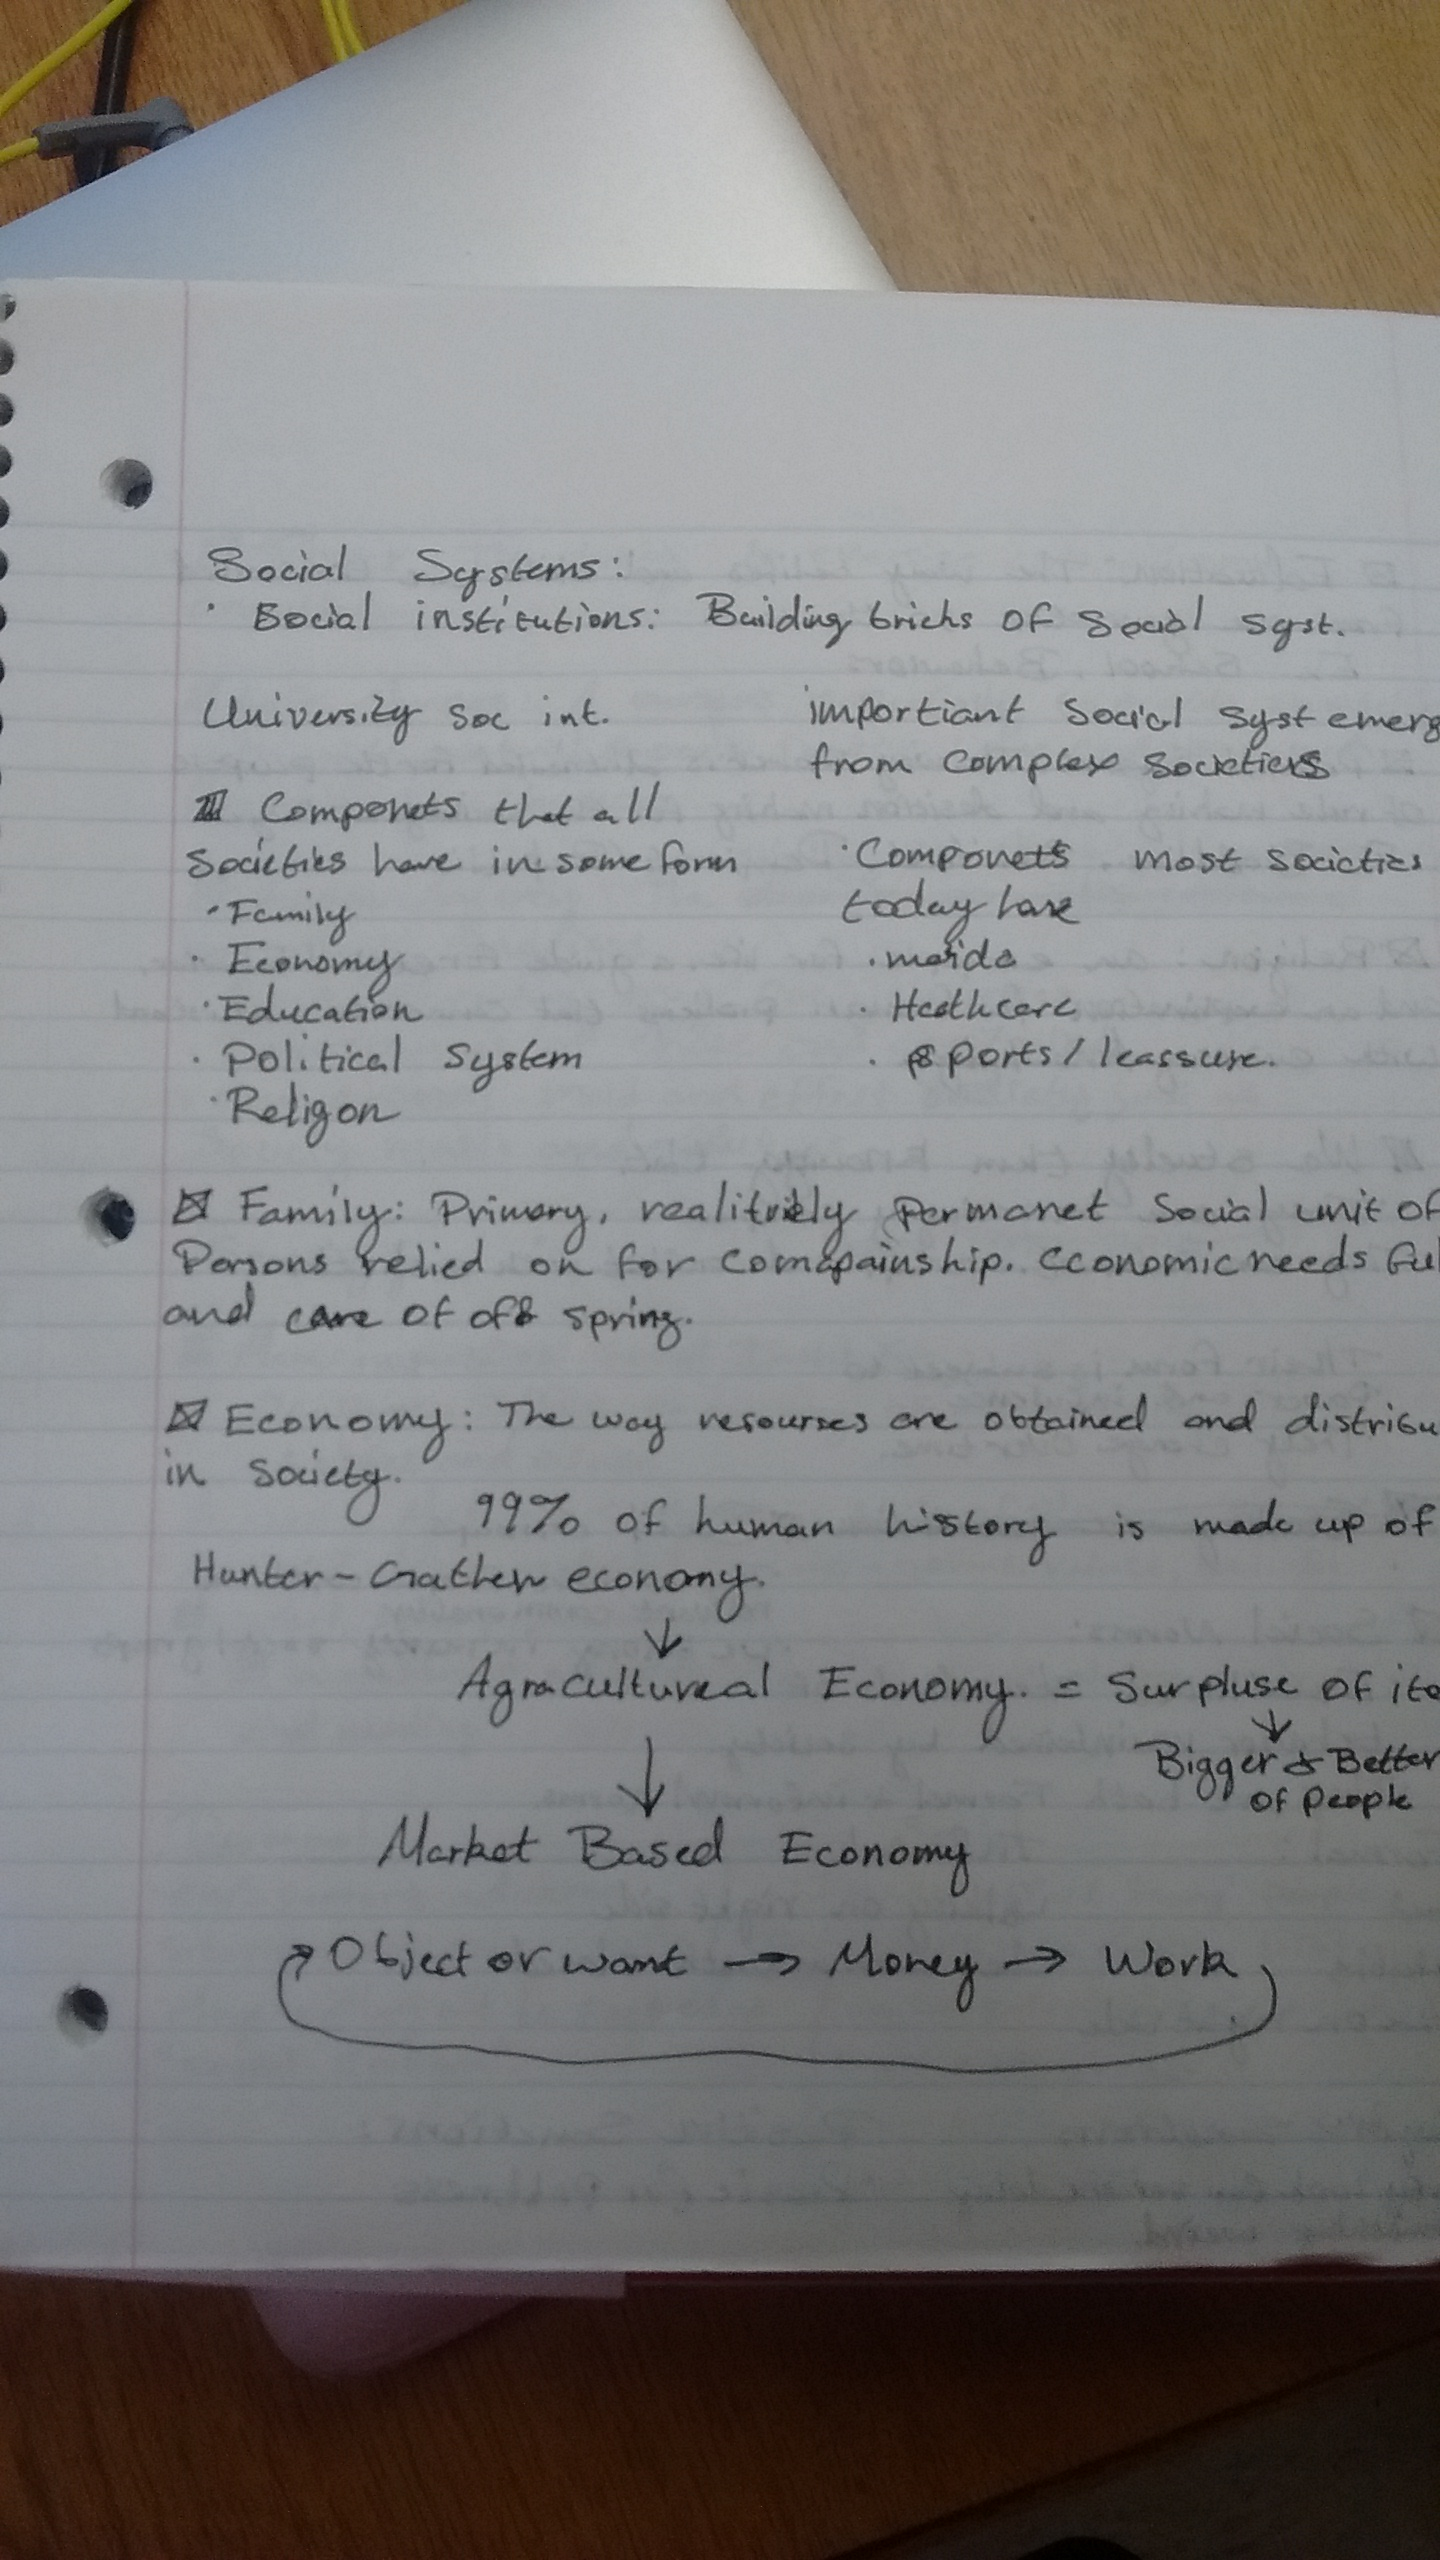 Social Systems:
· Social institutions: Building bricks of Social Syst.
University soc int.
importiant Social Syst emerg
from Complex Societies
Componets that all
Societies have in some form
· Family
· Economy
· Education
· Political System
· Religon
· Componets most societies
today have
· meida
· Healthcare
· sports/leassure.
Family: Primary, realitvily Permanet Social unit of
Persons relied on for Compainship. economic needs
and care of off spring.
Economy: The way resourses are obtained and distribu
in Society.
99% of human history is made up of
Hunter-Gather economy.
↓
Agracultureal Economy. = Surpluse of ite
↓
Bigger & Better
of People
↓
Market Based Economy
Object or want → Money → Work